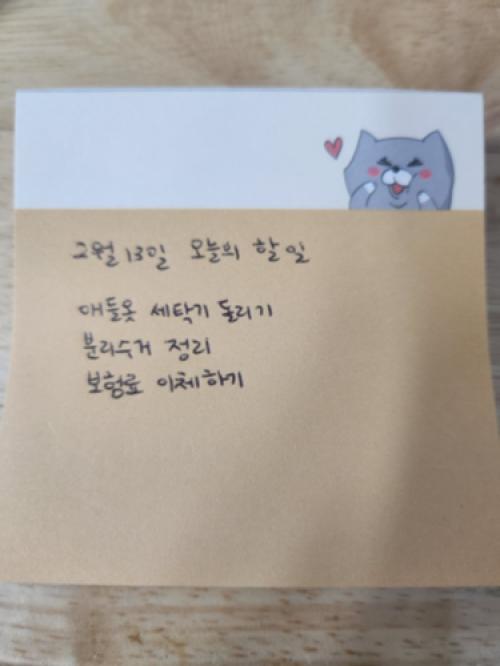 2월 13일 오늘의 할 일
애들옷 세탁기 돌리기
분리수거 정리
보험료 이체하기